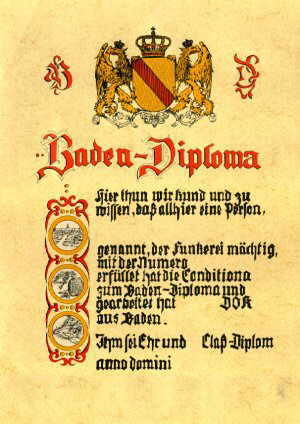 B D
Baden-Diploma
Hier thun wir kund und zu
wissen, daß allhier eine Person,
genannt, der Funkerei mächtig,
mit der Numero
erfüllet hat die Conditiona
zum Baden-Diploma und
gearbeitet hat DOK
aus Baden.
Ihm sei Ehr und Claß Diplom
anno domini